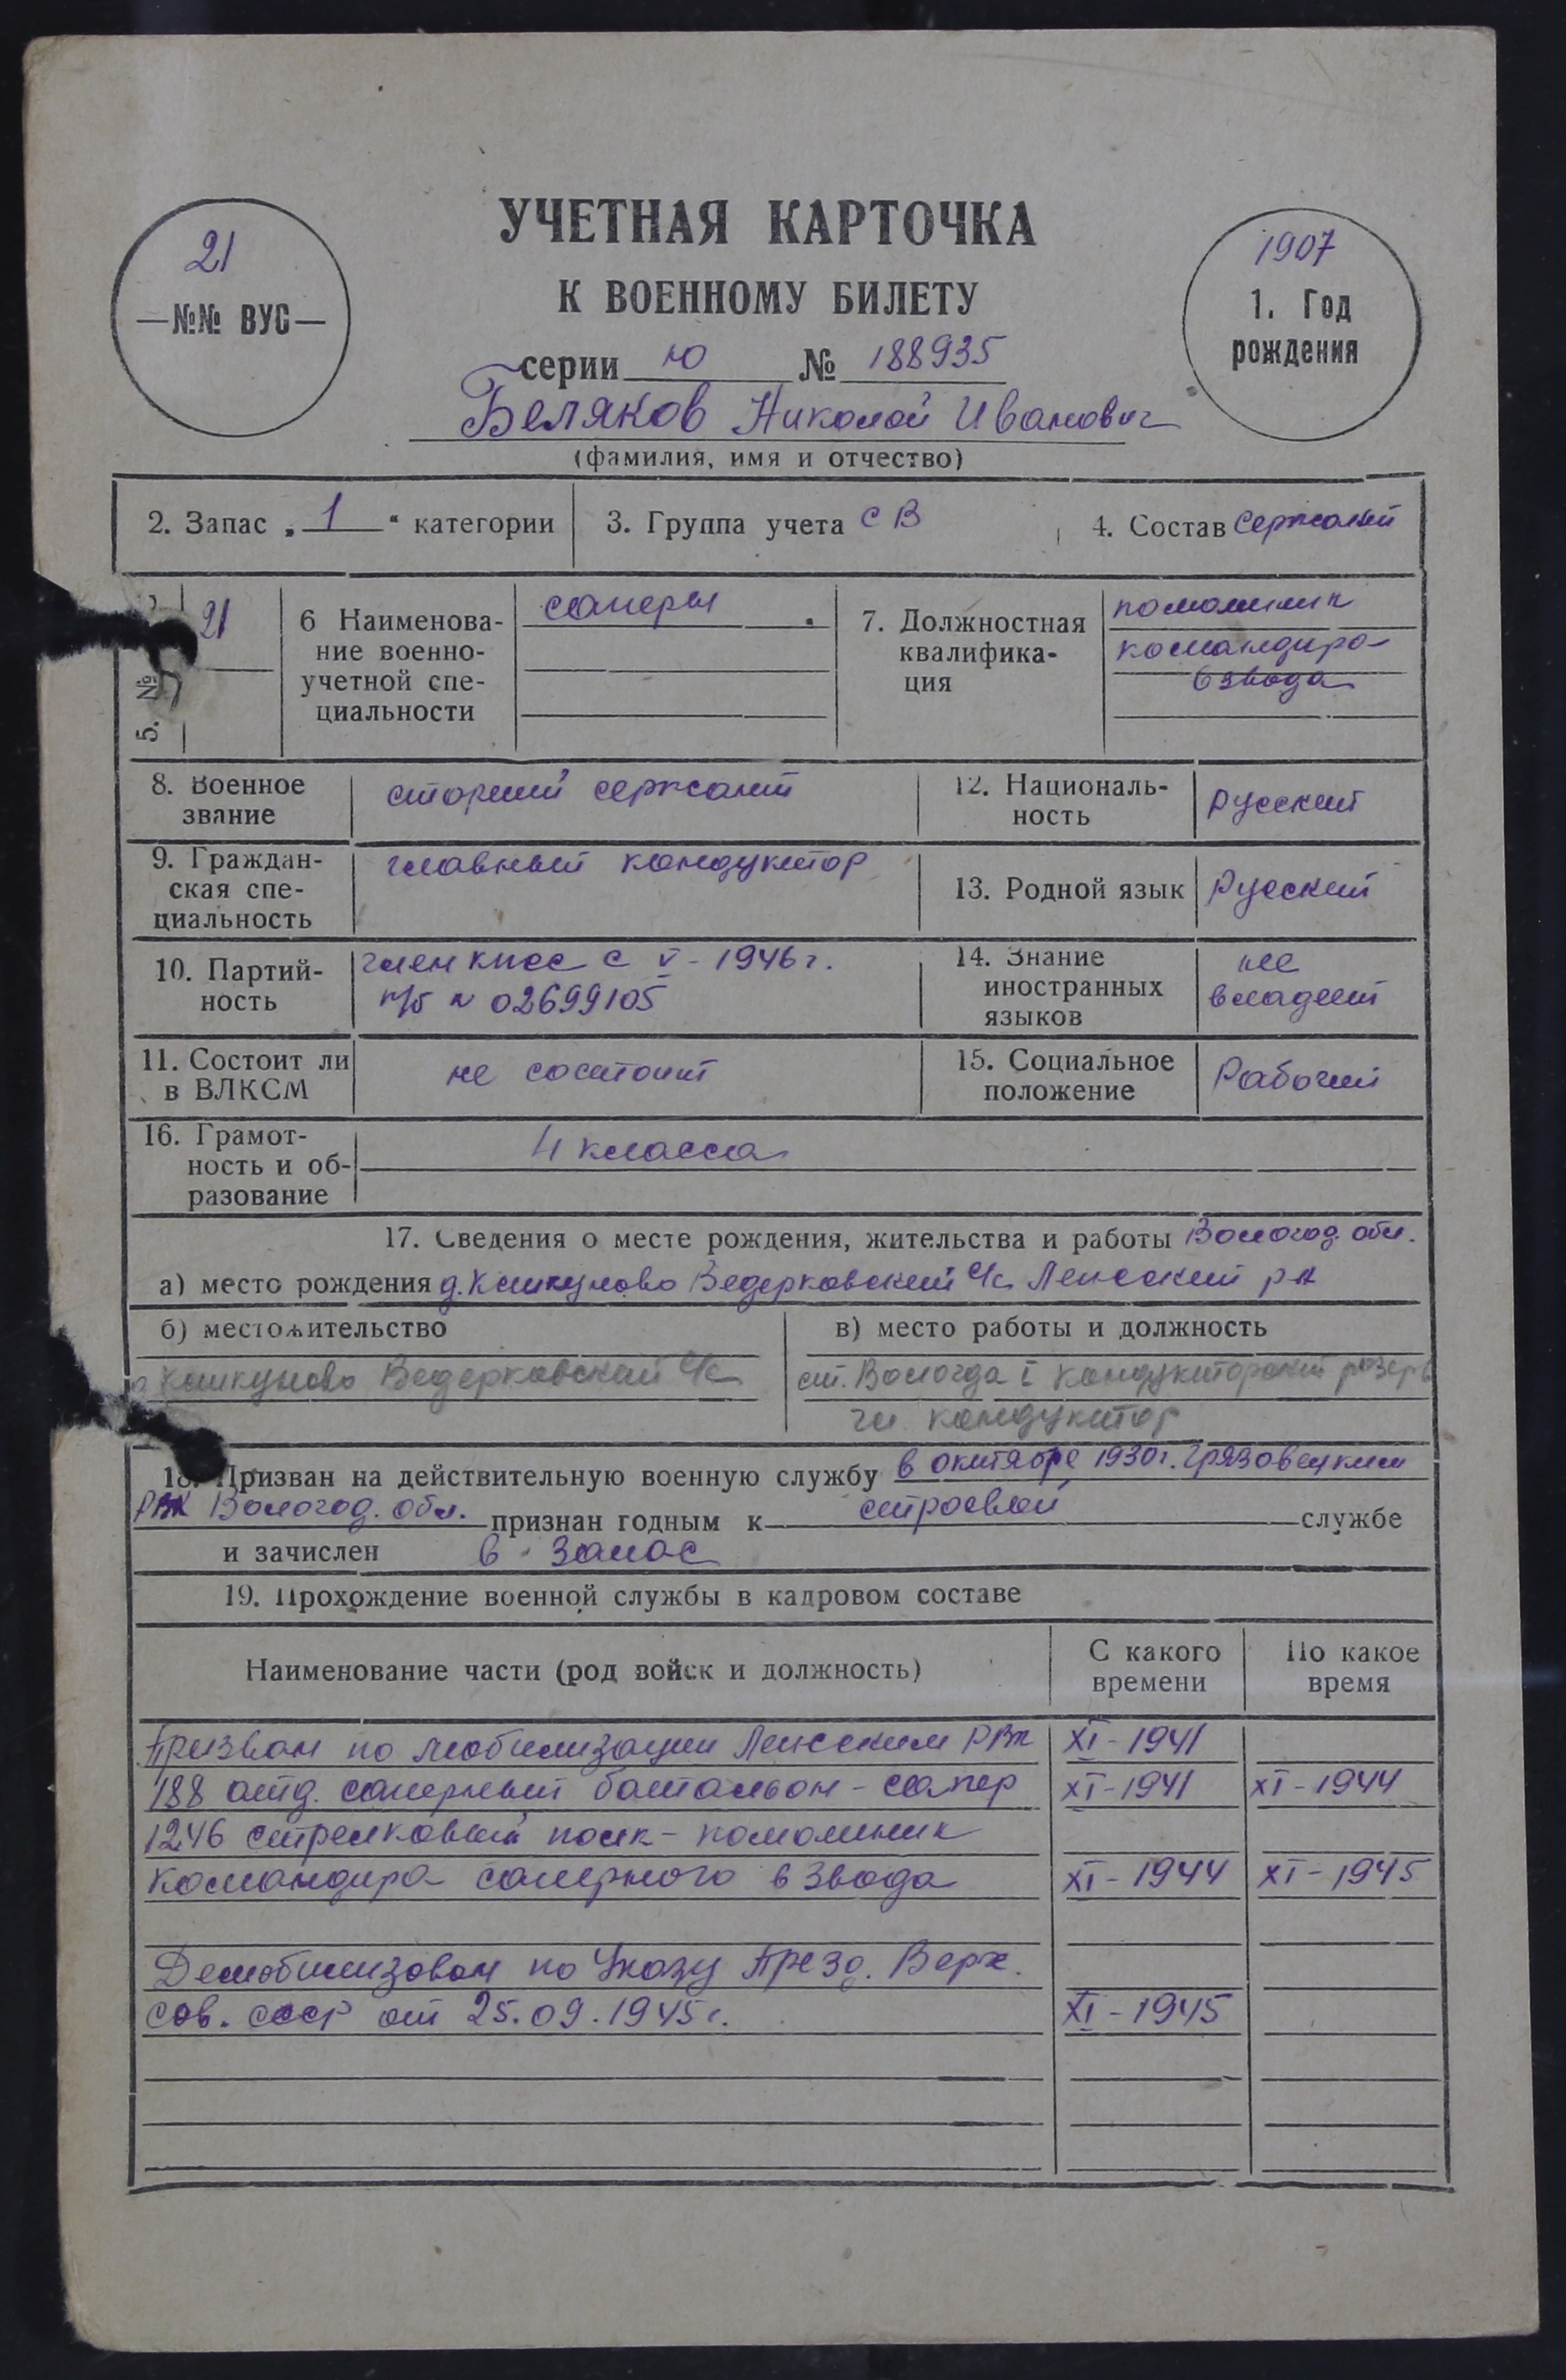 21
—№№ ВУС—
УЧЕТНАЯ КАРТОЧКА
К ВОЕННОМУ БИЛЕТУ
серии Ю № 188935
1907
1. Год
рождения
Беляков Николай Иванович
(фамилия, имя и отчество)
2. Запас „ 1 “ категории
3. Группа учета СВ
4. Состав Сержанский
5. №
21
6 Наименова-
ние военно-
учетной спе-
циальности
саперы
7. Должностная
квалифика-
ция
помощник
командира
взвода
8. Военное
звание
старший сержант
12. Националь-
ность
русский
9. Граждан-
ская спе-
циальность
главный кондуктор
13. Родной язык
Русский
10. Партий-
ность
член КПСС с V - 1946 г.
п/б № 02699105
14. Знание
иностранных
языков
не
владеет
11. Состоит ли
в ВЛКСМ
не состоит
15. Социальное
положение
Рабочий
16. Грамот-
ность и об-
разование
4 класса
17. Сведения о месте рождения, жительства и работы Вологод. обл.
а) место рождения д. Ведерковский с/с Лежский р-н
б) местожительство
Ведерковский с/с
в) место работы и должность
ст. Вологда I кондукторский резерв
гл. кондуктор
18. Призван на действительную военную службу в октябре 1930 г. Грязовецким
РВК Вологод. обл. признан годным к строевой службе
и зачислен в запас
19. Прохождение военной службы в кадровом составе
Наименование части (род войск и должность)
С какого
времени
По какое
время
Призван по мобилизации Лежским РВК XI - 1941
188 отд. саперный батальон - сапер XI - 1941 XI - 1944
1246 стрелковый полк - помощник
командира саперного взвода XI - 1944 XI - 1945
Демобилизован по Указу През. Верх.
Сов. СССР от 25.09.1945 г. XI - 1945